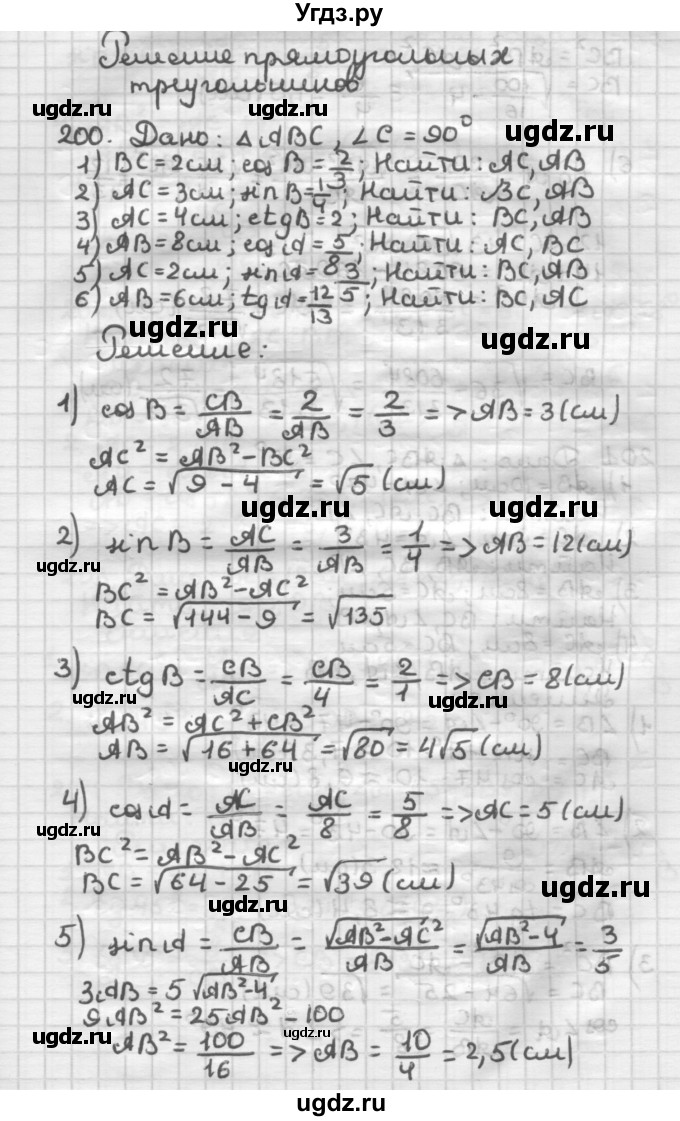 Угдз.ру
Решение прямоугольных
треугольников
ugdz.ru ugdz.ru
200. Дано: △ABC, ∠C = 90°
1) BC = 2см; cos B = 2/3; Найти: AC, AB
2) AC = 3см; sin B = 1/4; Найти: BC, AB
3) AC = 4см; ctg B = 2; Найти: BC, AB
4) AB = 8см; cos A = 5/8; Найти: AC, BC
5) AC = 2см; sin A = 3/5; Найти: BC, AB
6) AB = 6см; tg A = 12/13; Найти: BC, AC
ugdz.ru ugdz.ru
Решение:
1) cos B = CB/AB = 2/AB = 2/3 => AB = 3 (см)
AC² = AB² - BC²
AC = √(9 - 4) = √5 (см)
ugdz.ru ugdz.ru
2) sin B = AC/AB = 3/AB = 1/4 => AB = 12 (см)
ugdz.ru
BC² = AB² - AC²
ugdz.ru
BC = √(144 - 9) = √135
3) ctg B = CB/AC = CB/4 = 2/1 => CB = 8 (см)
ugdz.ru ugdz.ru
AB² = AC² + CB²
AB = √(16 + 64) = √80 = 4√5 (см)
ugdz.ru
4) cos A = AC/AB = AC/8 = 5/8 => AC = 5 (см)
ugdz.ru
BC² = AB² - AC²
BC = √(64 - 25) = √39 (см)
ugdz.ru
ugdz.ru
5) sin A = CB/AB = √(AB² - AC²)/AB = √(AB² - 4)/AB = 3/5
3AB = 5√(AB² - 4)
9AB² = 25AB² - 100
ugdz.ru ugdz.ru
AB² = 100/16 => AB = 10/4 = 2,5 (см)
ugdz.ru
ugdz.ru